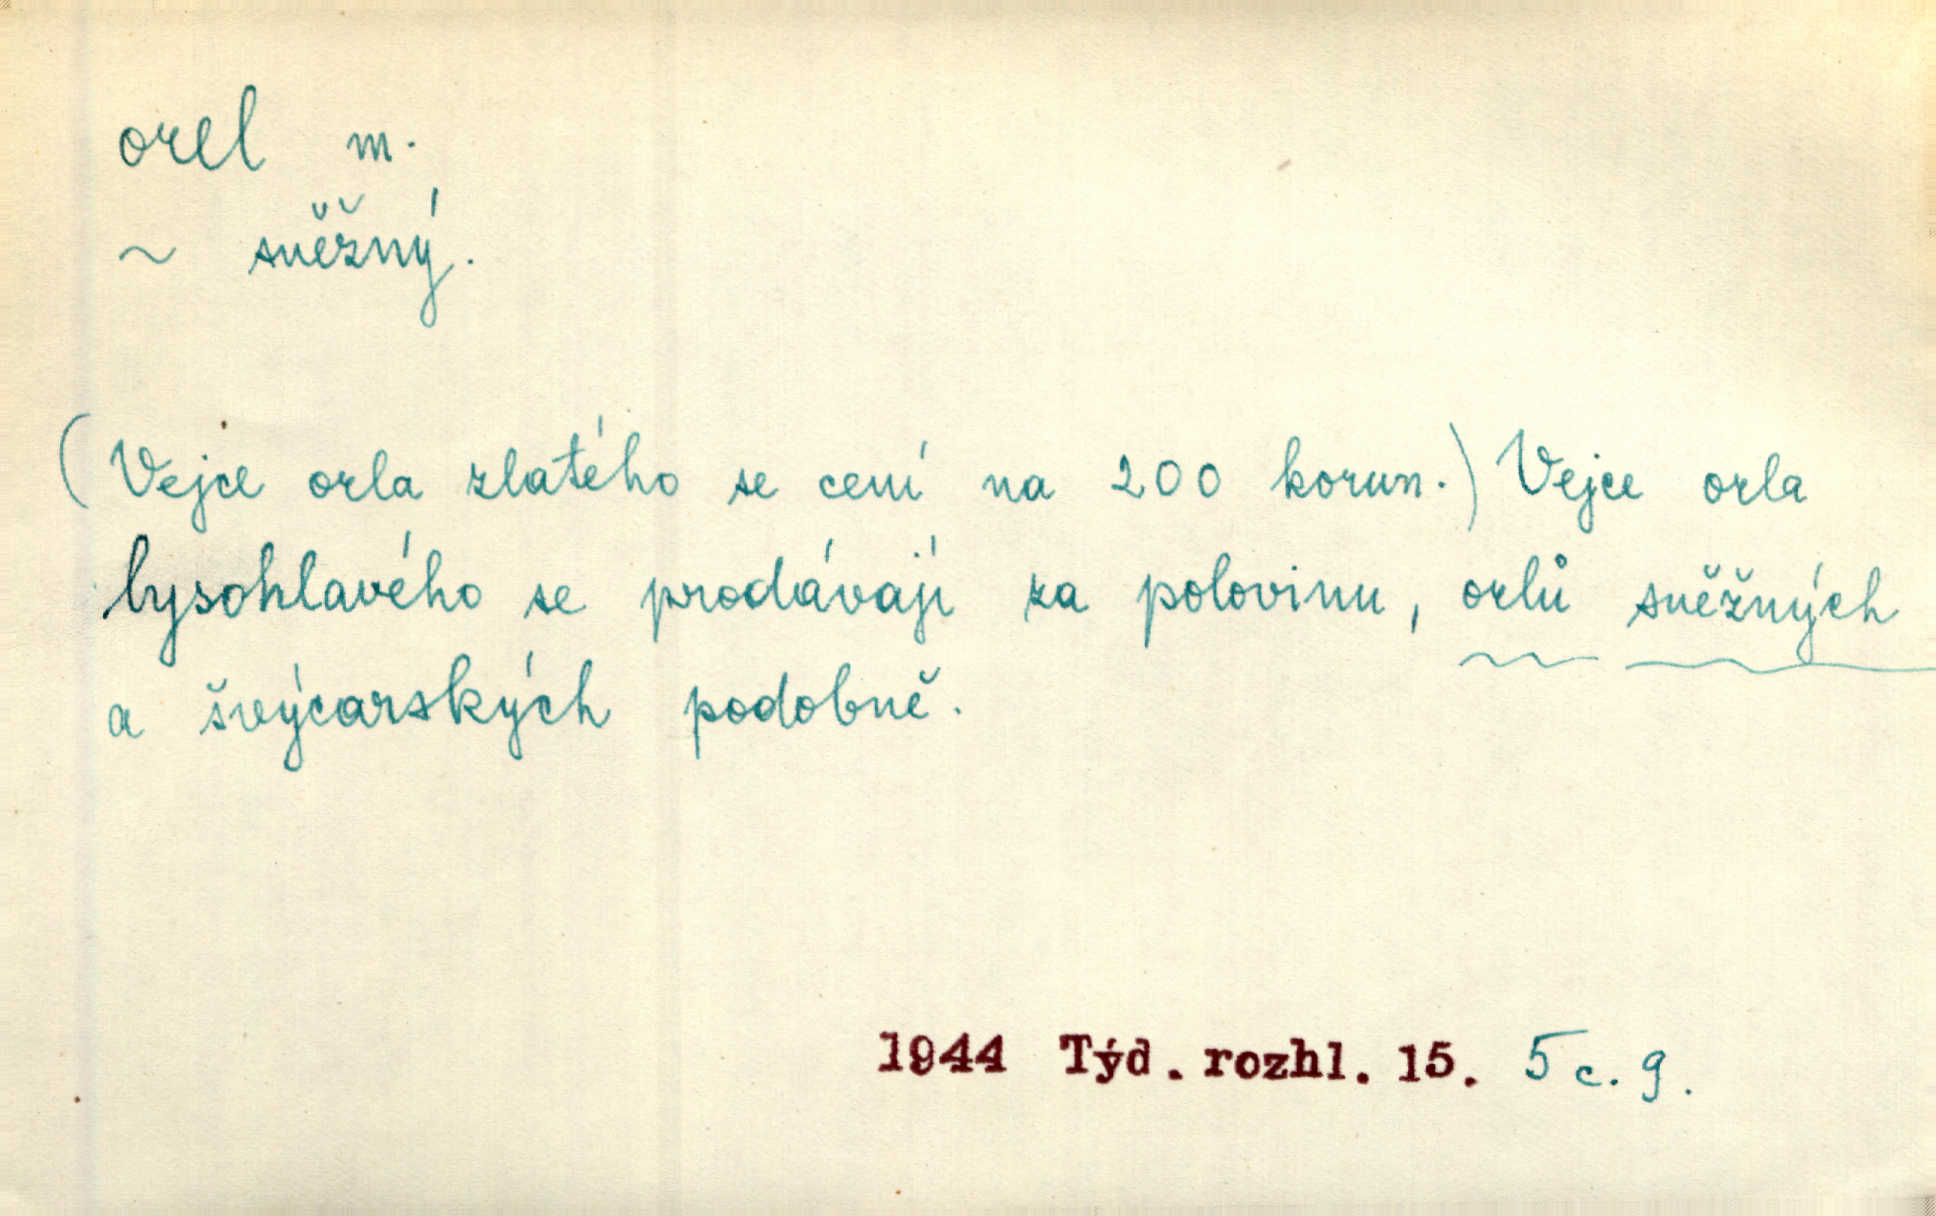 orel m.
~ sněžný.
(Vejce orla zlatého se cení na 200 korun.) Vejce orla
lysohlavého se prodávají za polovinu, orlů sněžných
a švýcarských podobně.
1944 Týd. rozhl. 15. 5 c. 9.